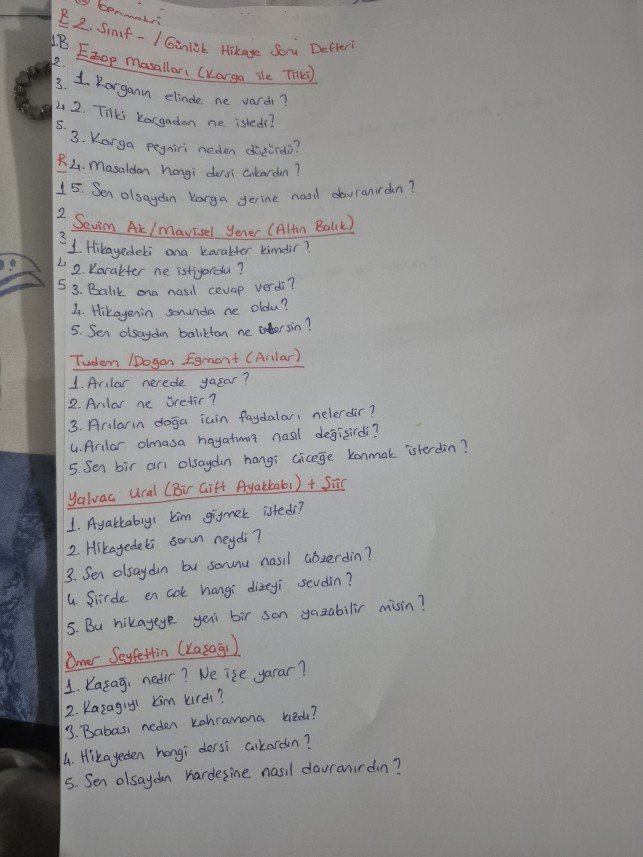 Genmabri
R 2. Sınıf - 1 Günlük Hikaye Soru Defteri
1.B
Ezop Masalları (Karga ile Tilki)
2.
3. 1. Karganın elinde ne vardı?
4 2. Tilki kargadan ne istedi?
5. 3. Karga peyniri neden düşürdü?
R 4. Masaldan hangi dersi çıkardın?
1 5. Sen olsaydın karga yerine nasıl davranırdın?
2
Sevim Ak/Mavisel Yener (Altın Balık)
3 1. Hikayedeki ana karakter kimdir?
4 2. Karakter ne istiyordu?
5 3. Balık ona nasıl cevap verdi?
4. Hikayenin sonunda ne oldu?
5. Sen olsaydın balıktan ne istersin?
Tudem /Doğan Egmont (Arılar)
1. Arılar nerede yaşar?
2. Arılar ne üretir?
3. Arıların doğa için faydaları nelerdir?
4. Arılar olmasa hayatımız nasıl değişirdi?
5. Sen bir arı olsaydın hangi çiçeğe konmak isterdin?
Yalvaç Ural (Bir Çift Ayakkabı) + Şiir
1. Ayakkabıyı kim giymek istedi?
2 Hikayedeki sorun neydi?
3. Sen olsaydın bu sorunu nasıl çözerdin?
4. Şiirde en çok hangi dizeyi sevdin?
5. Bu hikayeye yeni bir son yazabilir misin?
Ömer Seyfettin (Kaşağı)
1. Kaşağı nedir? Ne işe yarar?
2. Kaşağıyı kim kırdı?
3. Babası neden kahramana kızdı?
4. Hikayeden hangi dersi çıkardın?
5. Sen olsaydın kardeşine nasıl davranırdın?